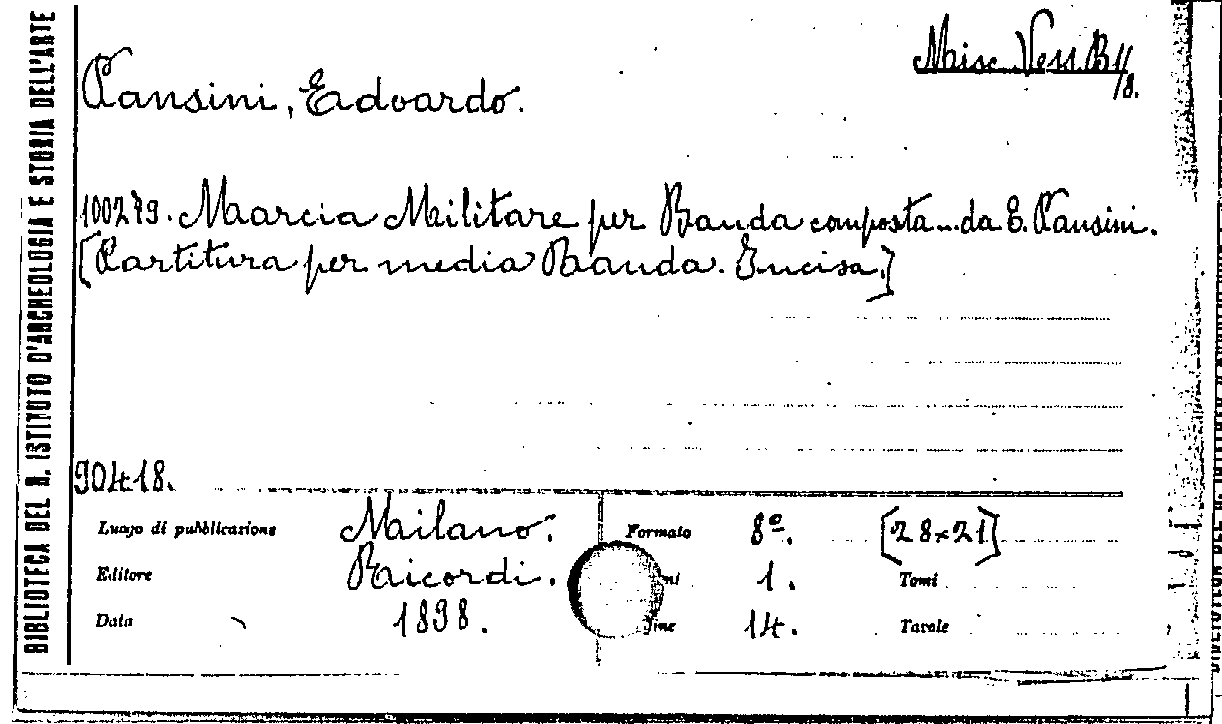 BIBLIOTECA DEL R. ISTITUTO D'ARCHEOLOGIA E STORIA DELL'ARTE
Misc. Vess. B 11/8.
Pansini, Edoardo.
100279. Marcia Militare per Banda composta... da E. Pansini.
[Partitura per media Banda. Incisa.]
90418.
Luogo di pubblicazione Milano. Formato 8º. [28×21]
Editore Ricordi. 1. Tomi
Data 1898. 14. Tavole